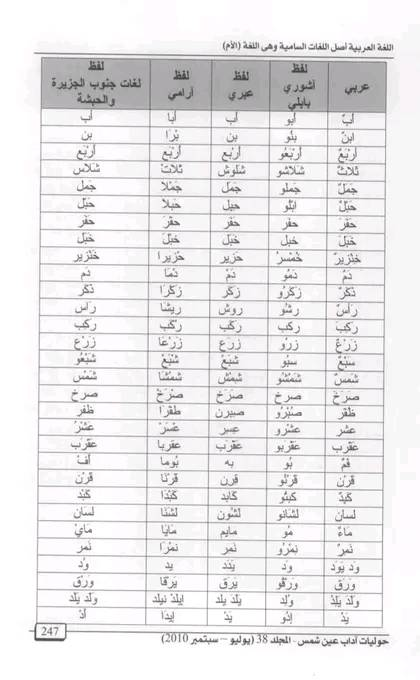 اللغة العربية أصل اللغات السامية وهى اللغة (الأم)
عربي | لفظ أشوري بابلي | لفظ عبري | لفظ آرامي | لفظ لغات جنوب الجزيرة والحبشة
أبٌ | أبو | أب | أبَا | أب
ابنٌ | بنُو | بن | بْرَا | بن
أرْبَع | أرْبَعُو | أرْبَع | أرْبَع | أرْبَع
ثلاثٌ | شلاشو | شلوش | ثلاث | شلاس
جَمَلٌ | جملو | جمل | جَمْلا | جمل
حَبْلٌ | ابْلُو | حبل | حبلا | حَبْل
حَفَر | حفر | حَفَر | حفَرَ | حَفَر
حَبَل | حبل | حبل | حَبَل | حَبَل
خنْزيرٌ | خُمْسرُ | حزير | حزيرا | خَنْزير
دَمٌ | دَمُو | دَمْ | دَمَا | دَم
ذَكَرٌ | زكَرُو | زكر | زكرَا | ذَكَر
رَأسٌ | رشُو | روش | ريشَا | رَاس
ركب | ركب | ركَب | ركَب | ركَب
زَرعٌ | زرو | زرع | زرْعَا | زَرْع
سَبْعٌ | سبُو | شبْع | شبْع | شَبْعُو
شَمْسٌ | شمْشُو | شمْش | شمْشَا | شَمْس
صرخ | صرخ | صَرَخ | صَرَخ | صَرَخ
ظفْر | صُبْرُو | صيرن | طفْرَا | ظفر
عشر | عشْرو | عسر | عْسَرْ | عَشْرُ
عَقْرَب | عقربو | عقرَب | عقربا | عقْرَب
فمٌ | بو | به | بوما | أفْ
قَرْن | قرْنُو | قرن | قرْنَا | قَرْن
كَبدٌ | كبتُو | كابد | كَبْدَا | كَبْد
لسان | لشانو | لشون | لشنَا | لسَان
مَاءٌ | مُو | مايم | مايَا | مَايْ
نَمر | نمْرُو | نمر | نمْرَا | نَمر
وَد يَوَد | وَد | يَدَد | يد | وُد
وَرَق | ورقُو | يَرَق | يَرْقا | وَرْق
وَلَد يَلدْ | ولد | يَلَد | ايلدْ نيلد | ولَد يَلد
يَدٌ | إدُو | يَدْ | إيدَا | أدْ
حوليات آداب عين شمس - المجلد 38 (يوليو – سبتمبر 2010)
247